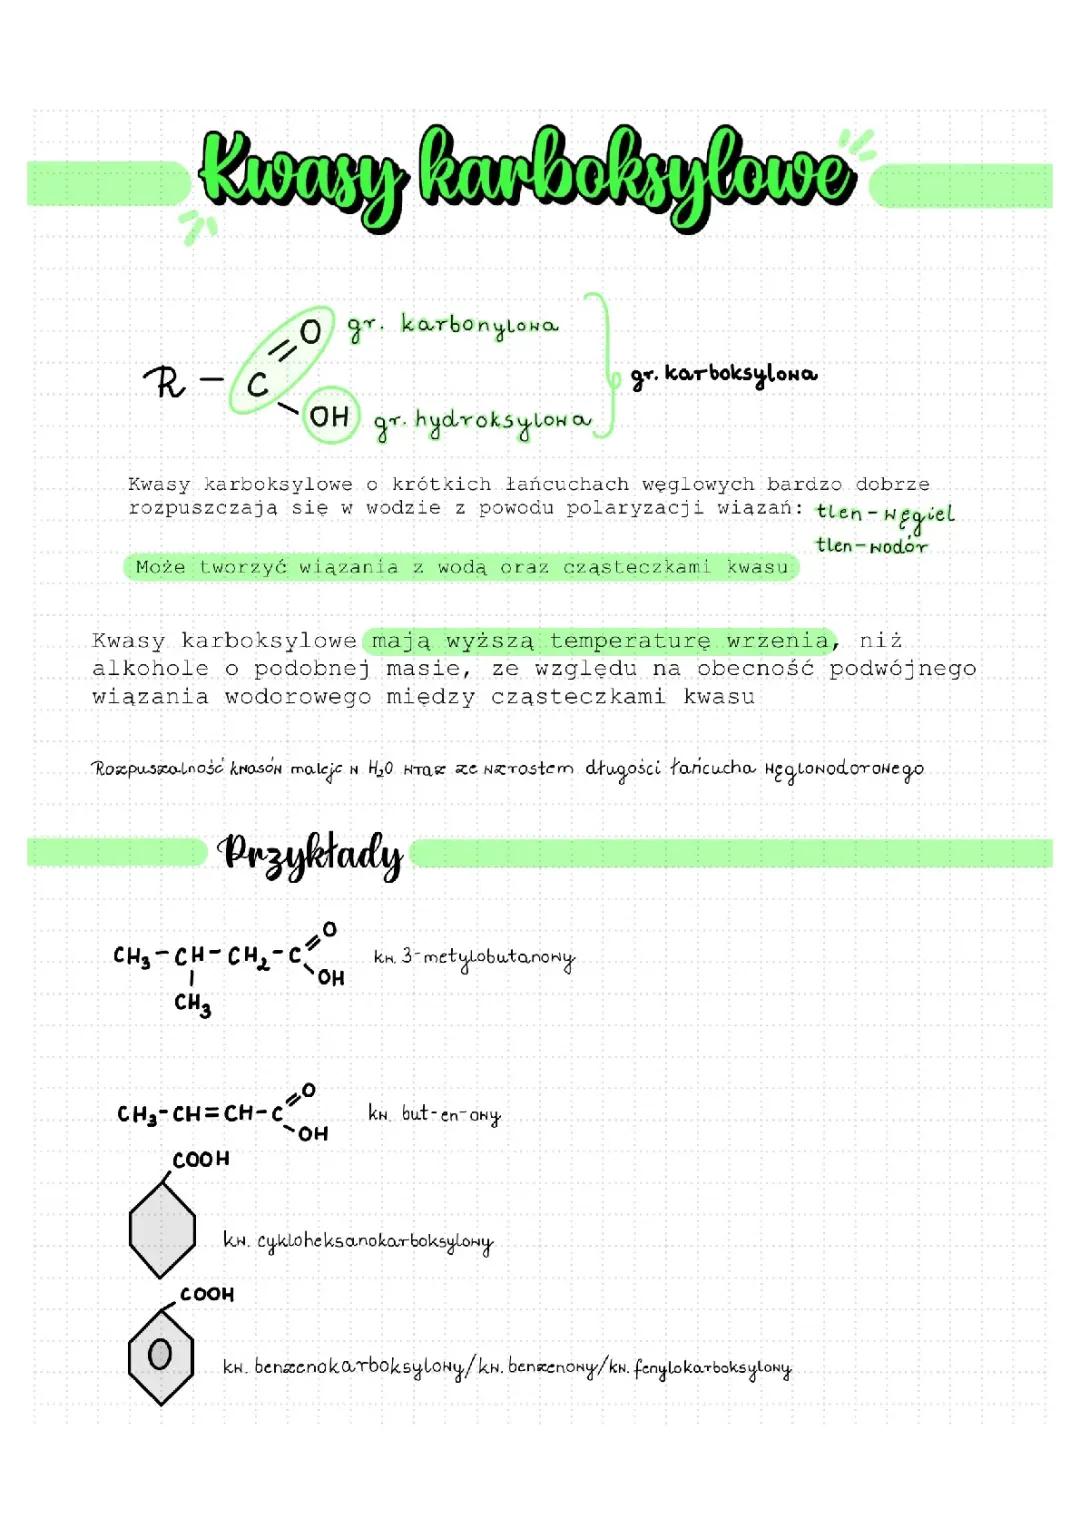 Kwasy karboksylowe
O gr. karbonylowa
R - C gr. karboksylowa
OH gr. hydroksylowa
Kwasy karboksylowe o krótkich łańcuchach węglowych bardzo dobrze
rozpuszczają się w wodzie z powodu polaryzacji wiązań: tlen-węgiel
tlen-wodór
Może tworzyć wiązania z wodą oraz cząsteczkami kwasu
Kwasy karboksylowe mają wyższą temperaturę wrzenia, niż
alkohole o podobnej masie, ze względu na obecność podwójnego
wiązania wodorowego między cząsteczkami kwasu
Rozpuszalność kwasów maleje w H₂O wraz ze wzrostem długości łańcucha węglowodorowego
Przykłady
O
CH₃-CH-CH₂-C kw. 3-metylobutanowy
OH
CH₃
O
CH₃-CH=CH-C kw. but-en-owy
OH
COOH
kw. cykloheksanokarboksylowy
COOH
kw. benzenokarboksylowy/kw. benzenowy/kw. fenylokarboksylowy